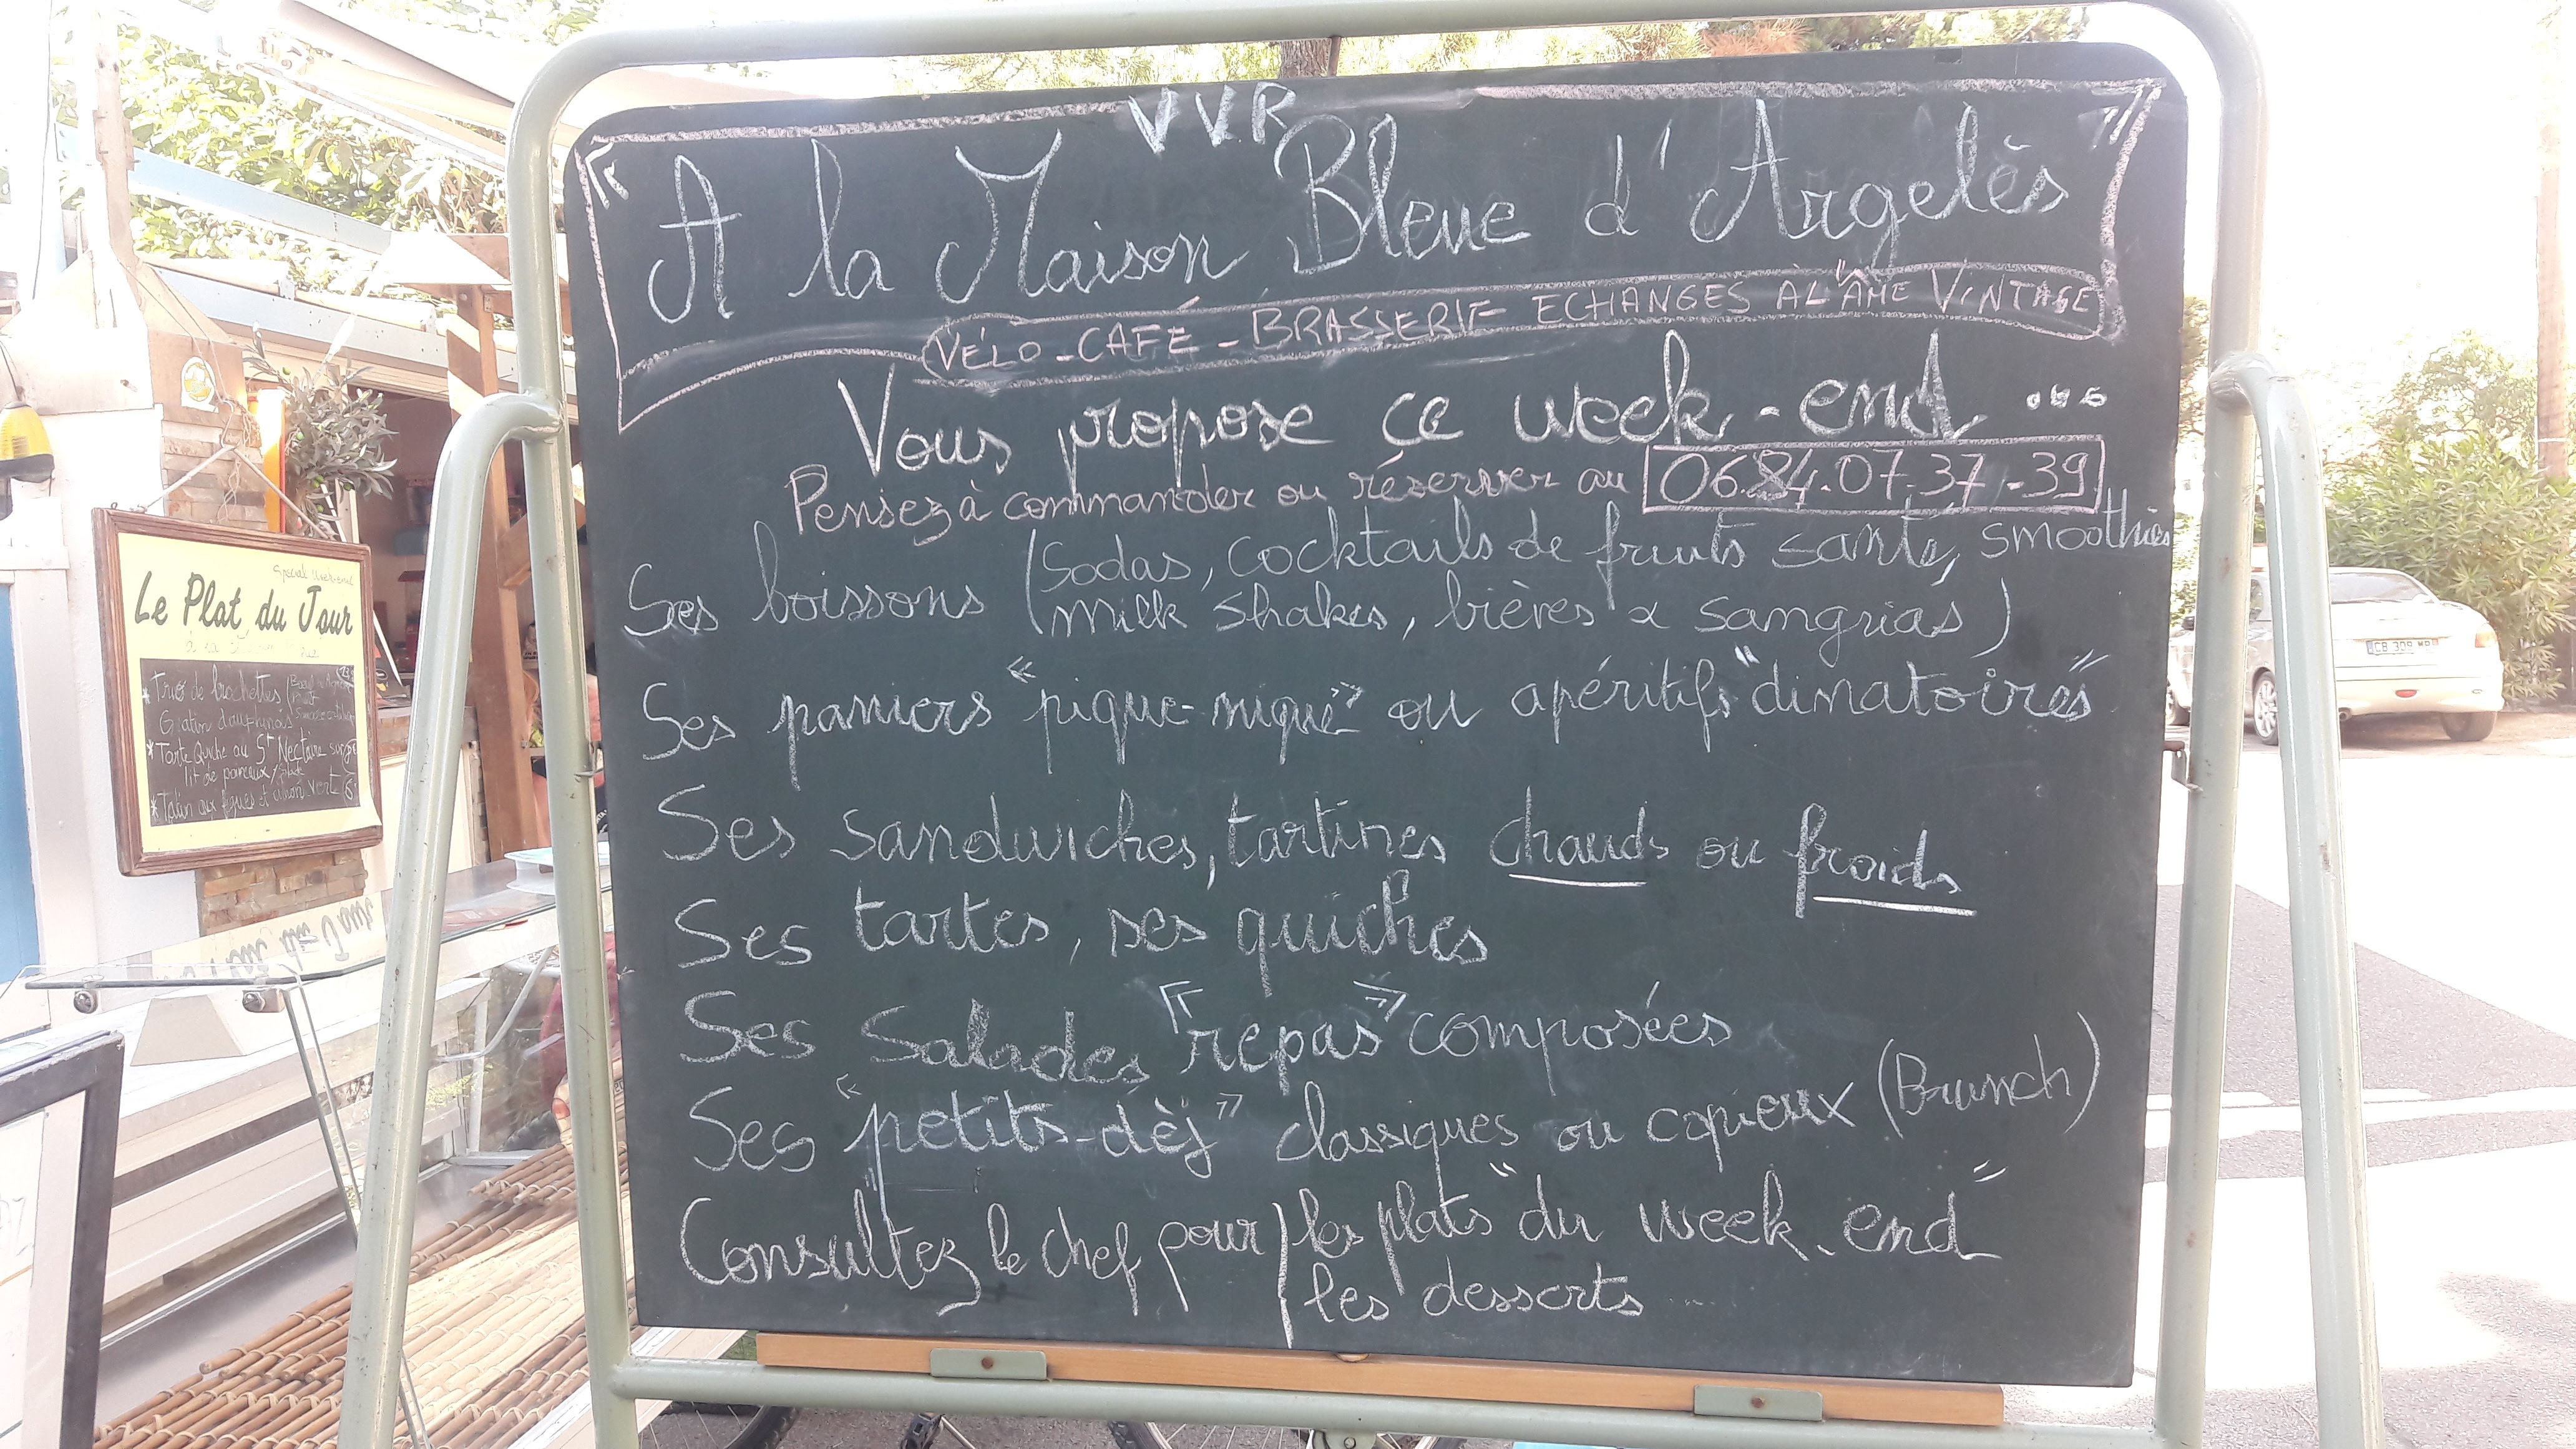 VVR
« A la Maison Bleue d'Argelès »
VÉLO-CAFÉ-BRASSERIE ECHANGES A L'ÂME VINTAGE
Vous propose ce week-end ...
Pensez à commander ou réserver au 06.84.07.37.39
Ses boissons (Sodas, cocktails de fruits santé, smoothies
milk shakes, bières & sangrias)
Ses paniers "pique-nique" ou apéritifs "dinatoires"
Ses sandwiches, tartines chauds ou froids
Ses tartes, ses quiches
Ses salades «repas» composées
Ses «petits-dèj» classiques ou copieux (Brunch)
Consultez le chef pour les plats "du week-end"
les desserts ...
Spéciale Week-end
Le Plat du Jour
* Trio de brochettes
Gratin dauphinois
* Tarte Quiche au St Nectaire sur
lit de poireaux / Salade
* Tatin aux figues et citron vert
CB 309